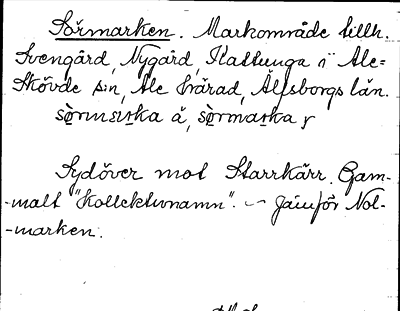 Sörmarken. Markområde tillh.
Svengård, Nygård, Kattunga i Ale=
Skövde s:n, Ale härad, Älfsborgs län.
å,
Sydöver mot Starrkärr. Gam-
-malt "Kollektivnamn". ~ Jämför Nol-
-marken.